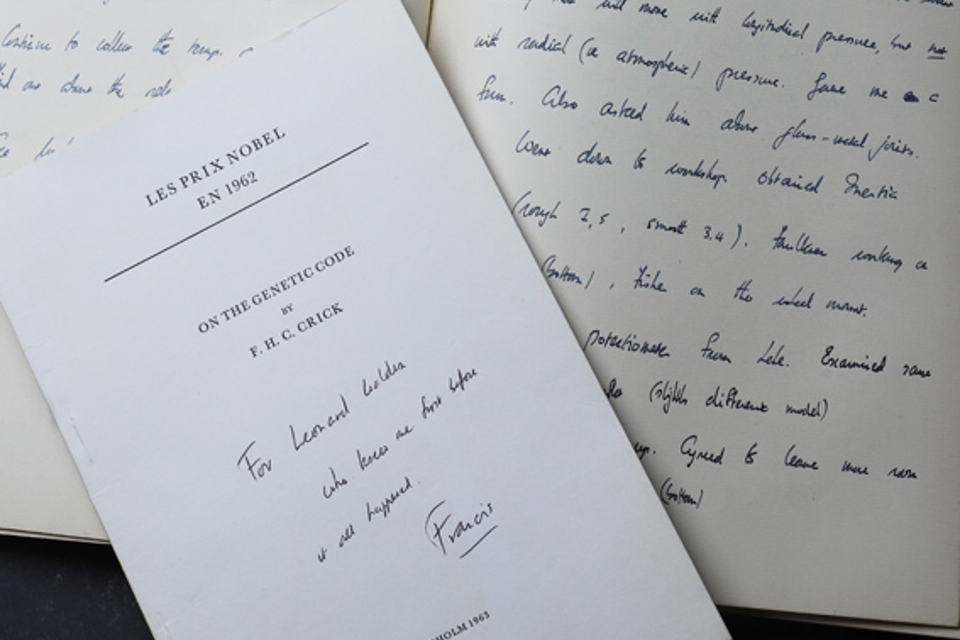 Continue to collect the temp.
about the role
will move with longitudinal pressure, but not
with radial (ie atmospheric) pressure. Gave me a
Also asked him about glass-metal joints.
Went down to workshop obtained Inertia
(rough 2,5, smooth 3.4). Faulkner working
(bottom), Fisher on the wheel mount.
potentiometer from Lab. Examined same
(slightly different model)
up. Agreed to leave more room
(bottom)
LES PRIX NOBEL
EN 1962
ON THE GENETIC CODE
BY
F. H. C. CRICK
For Leonard
who knew me first before
it all happened.
Francis
HOLM 1963